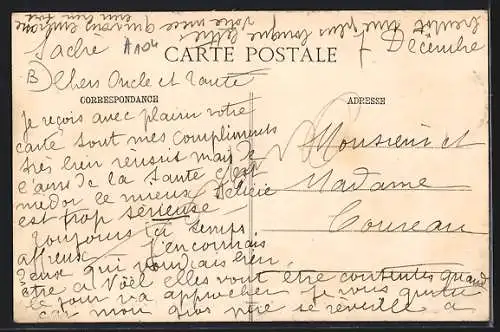 bientôt une plus longue lettre
votre nièce qui vous embrasse
bien fort
Sacre A1104 7 Décembre
CARTE POSTALE
B Chers Oncle et Tante
CORRESPONDANCE
ADRESSE
Je reçois avec plaisir votre
carte sont mes compliments
très bien reussit mais de
c'aurs de la Santé c'est
le mieux Felicie
est trop sérieuse
Toujours un temps
affreux j'en connais
Zeuse qui voudrais bien
être a Noël elles vont être contentes quand
le jour va approcher Je vous quitte
car mon gros père se réveille a
Monsieur et
Madame
Coureau